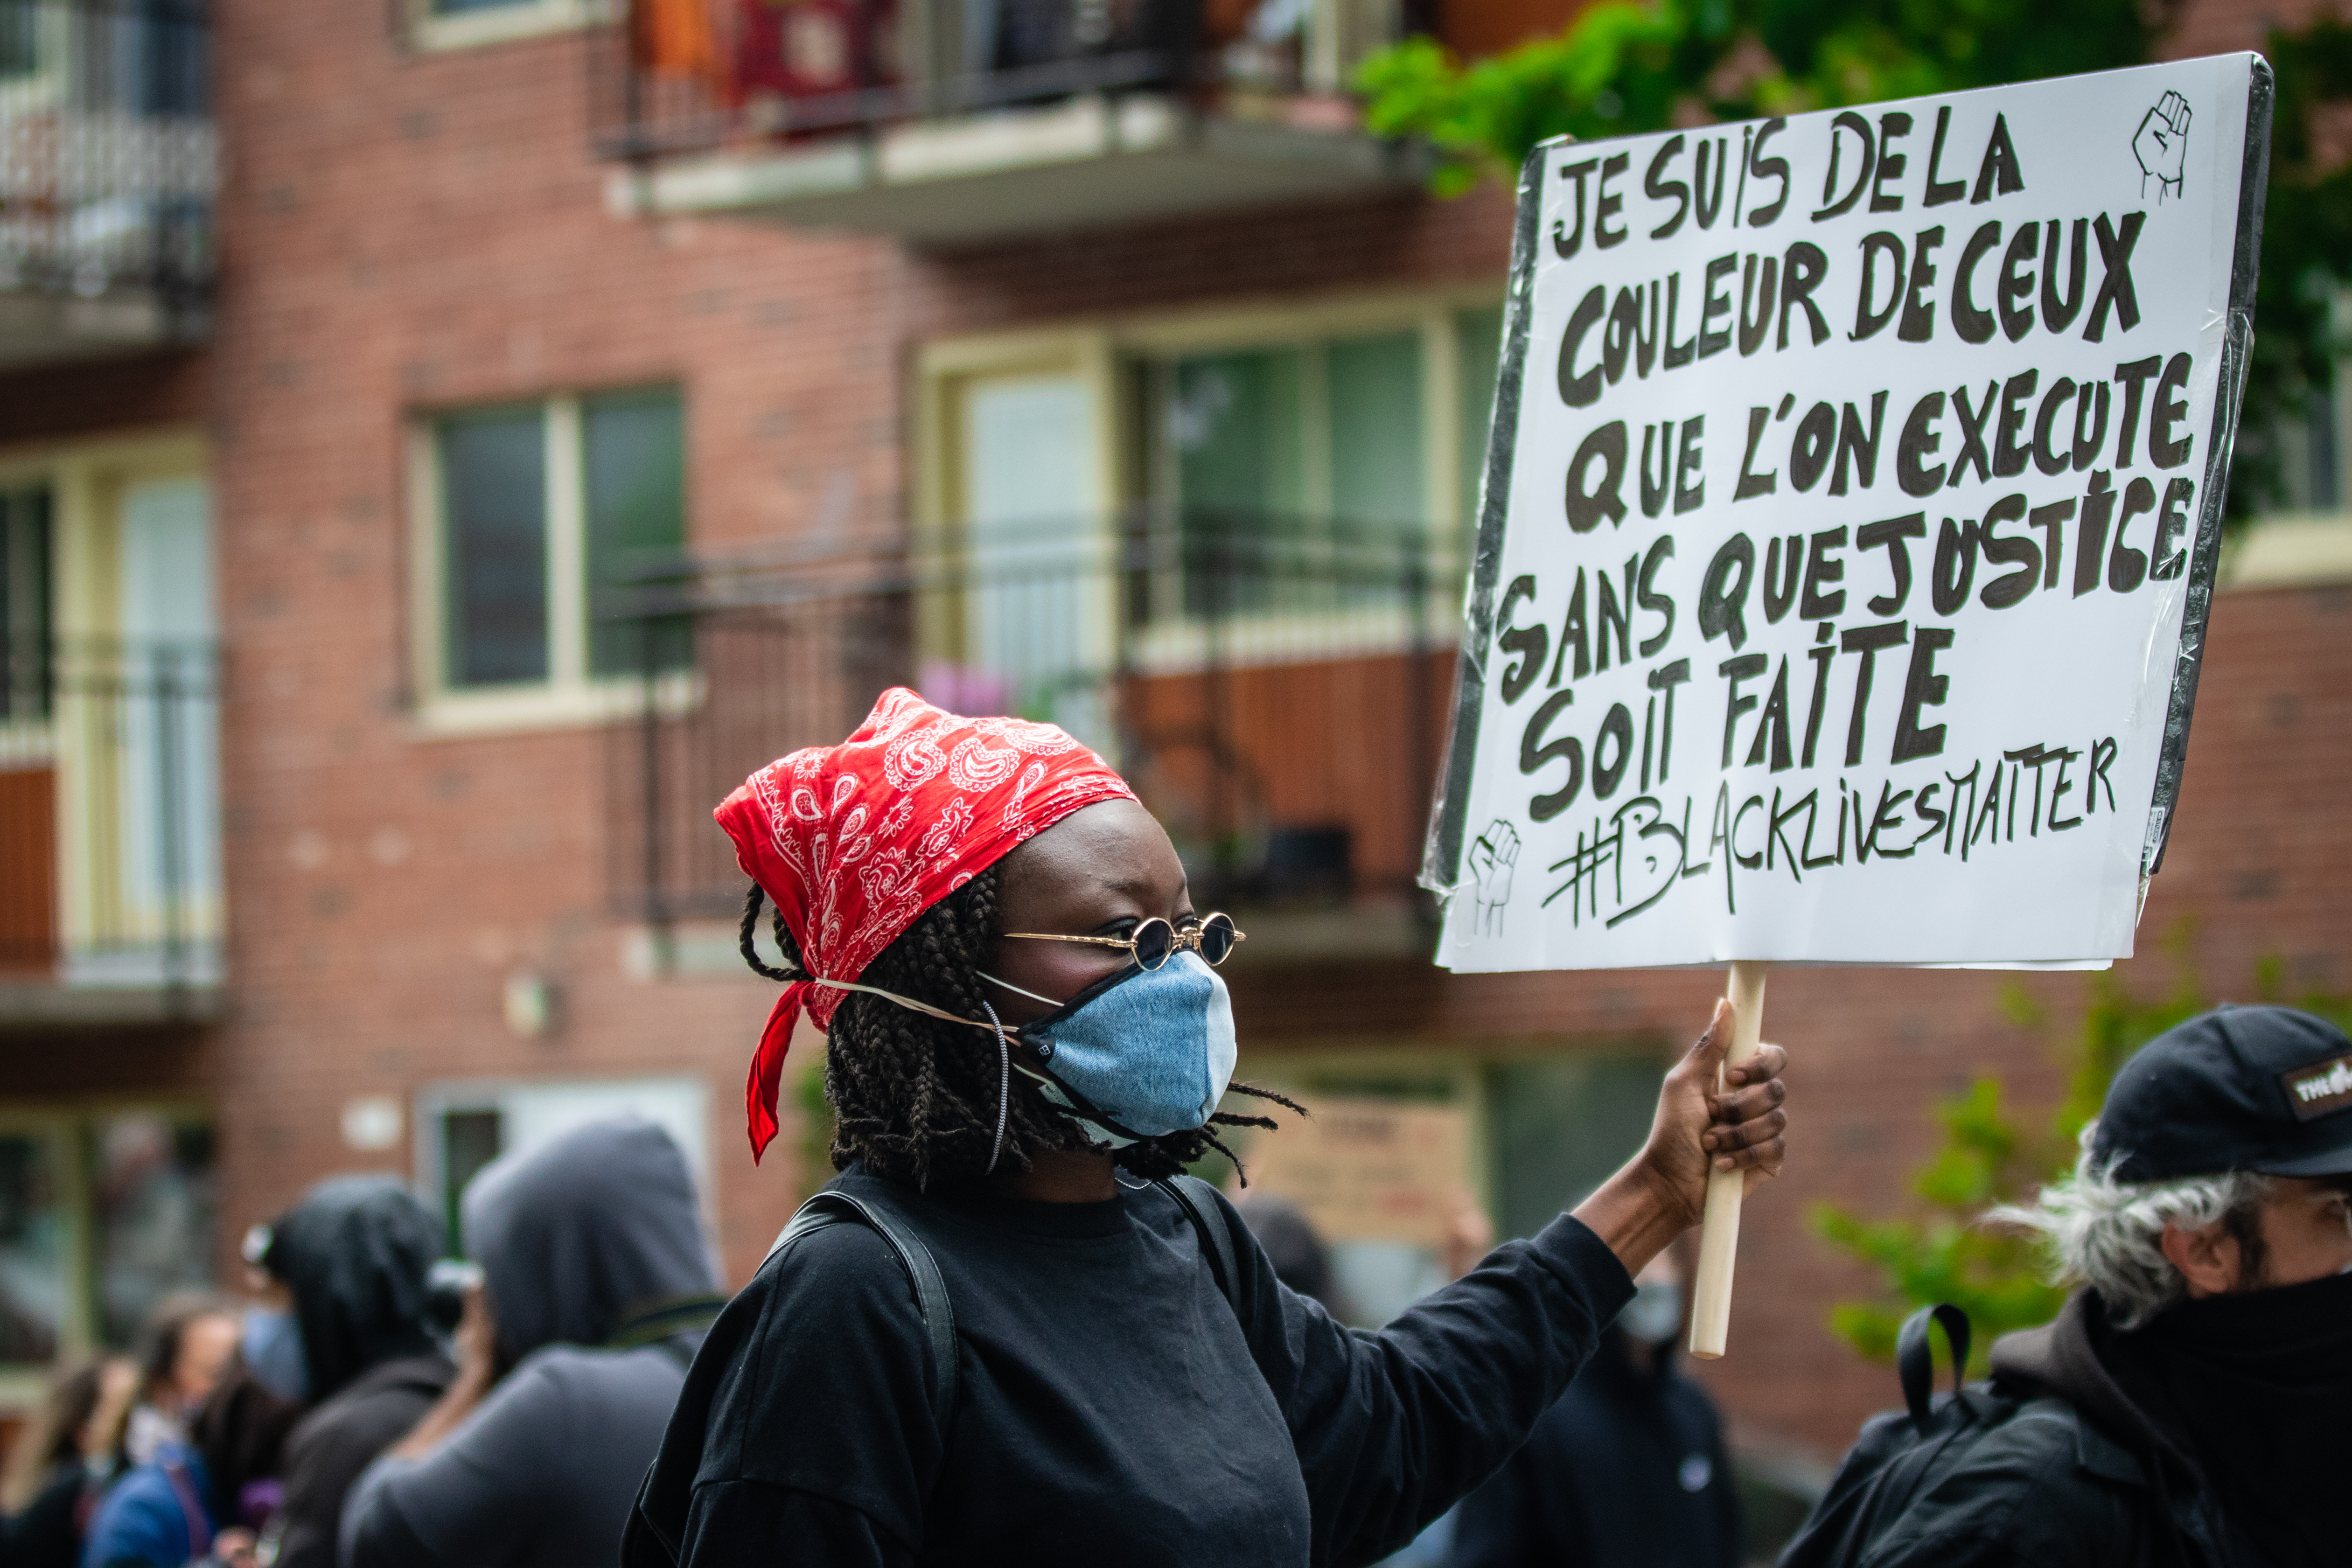 JE SUIS DE LA
COULEUR DE CEUX
QUE L'ON EXECUTE
SANS QUE JUSTICE
SOIT FAITE
#BLACKLIVESMATTER
THE